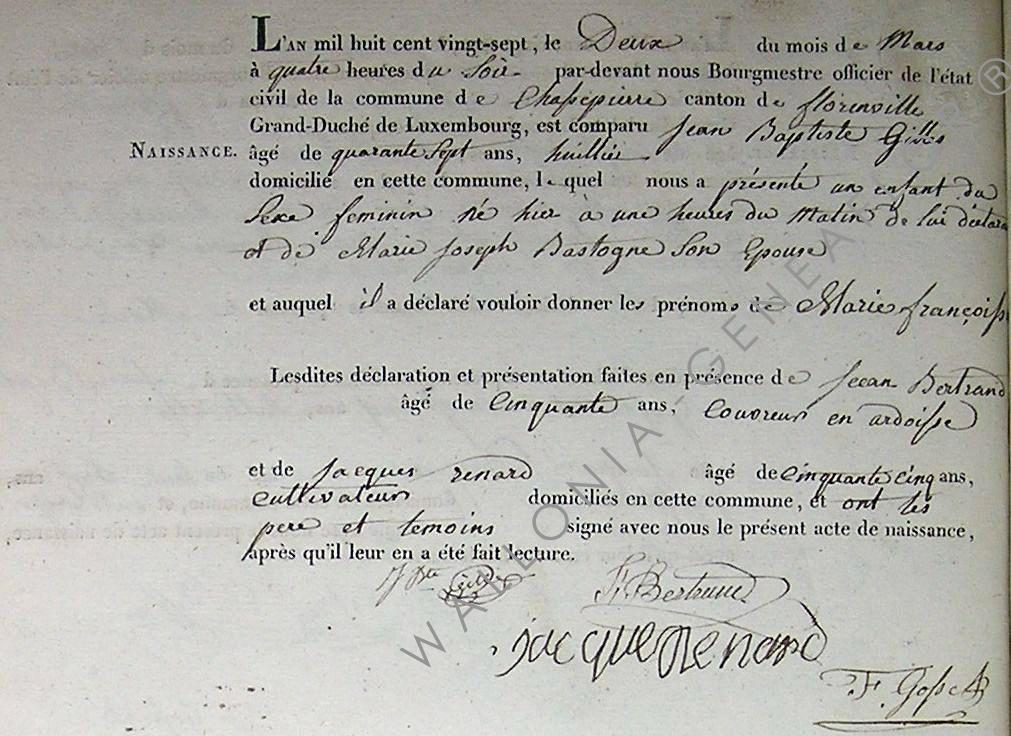 L'AN mil huit cent vingt-sept, le Deux du mois de Mars
à quatre heures du Soir par-devant nous Bourgmestre officier de l'état
civil de la commune de Chassepierre canton de florenville
Grand-Duché de Luxembourg, est comparu Jean Baptiste
NAISSANCE. âgé de quarante Sept ans, huillier
domicilié en cette commune, lequel nous a présenté un enfant du
Sexe feminin né hier à une heures du Matin de lui déclarant
et de Marie Joseph Bastogne Son Epouse
et auquel il a déclaré vouloir donner les prénoms de Marie françoisse
Lesdites déclaration et présentation faites en présence de Jean Bertrand
âgé de Cinquante ans, Couvreur en ardoisse
et de Jacques renard âgé de cinquante cinq ans,
cultivateur domiciliés en cette commune, et ont les
pere et temoins signé avec nous le présent acte de naissance,
après qu'il leur en a été fait lecture.
Bertrand
jacque Renard
WALLONIA GENEA ®